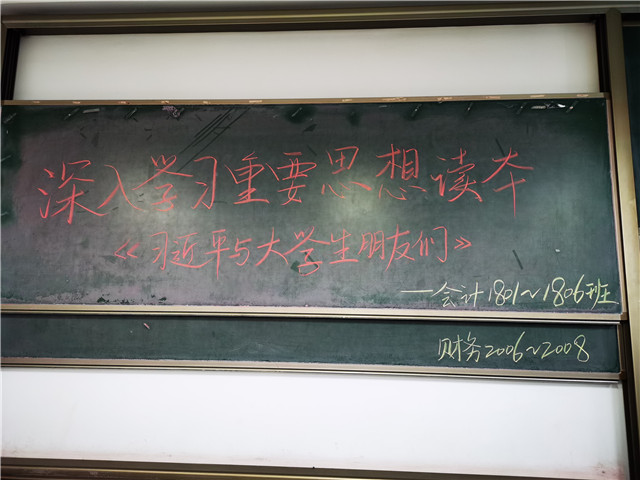 深入学习重要思想读本
《习近平与大学生朋友们》
—会计1801~1806班
财务2006~2008